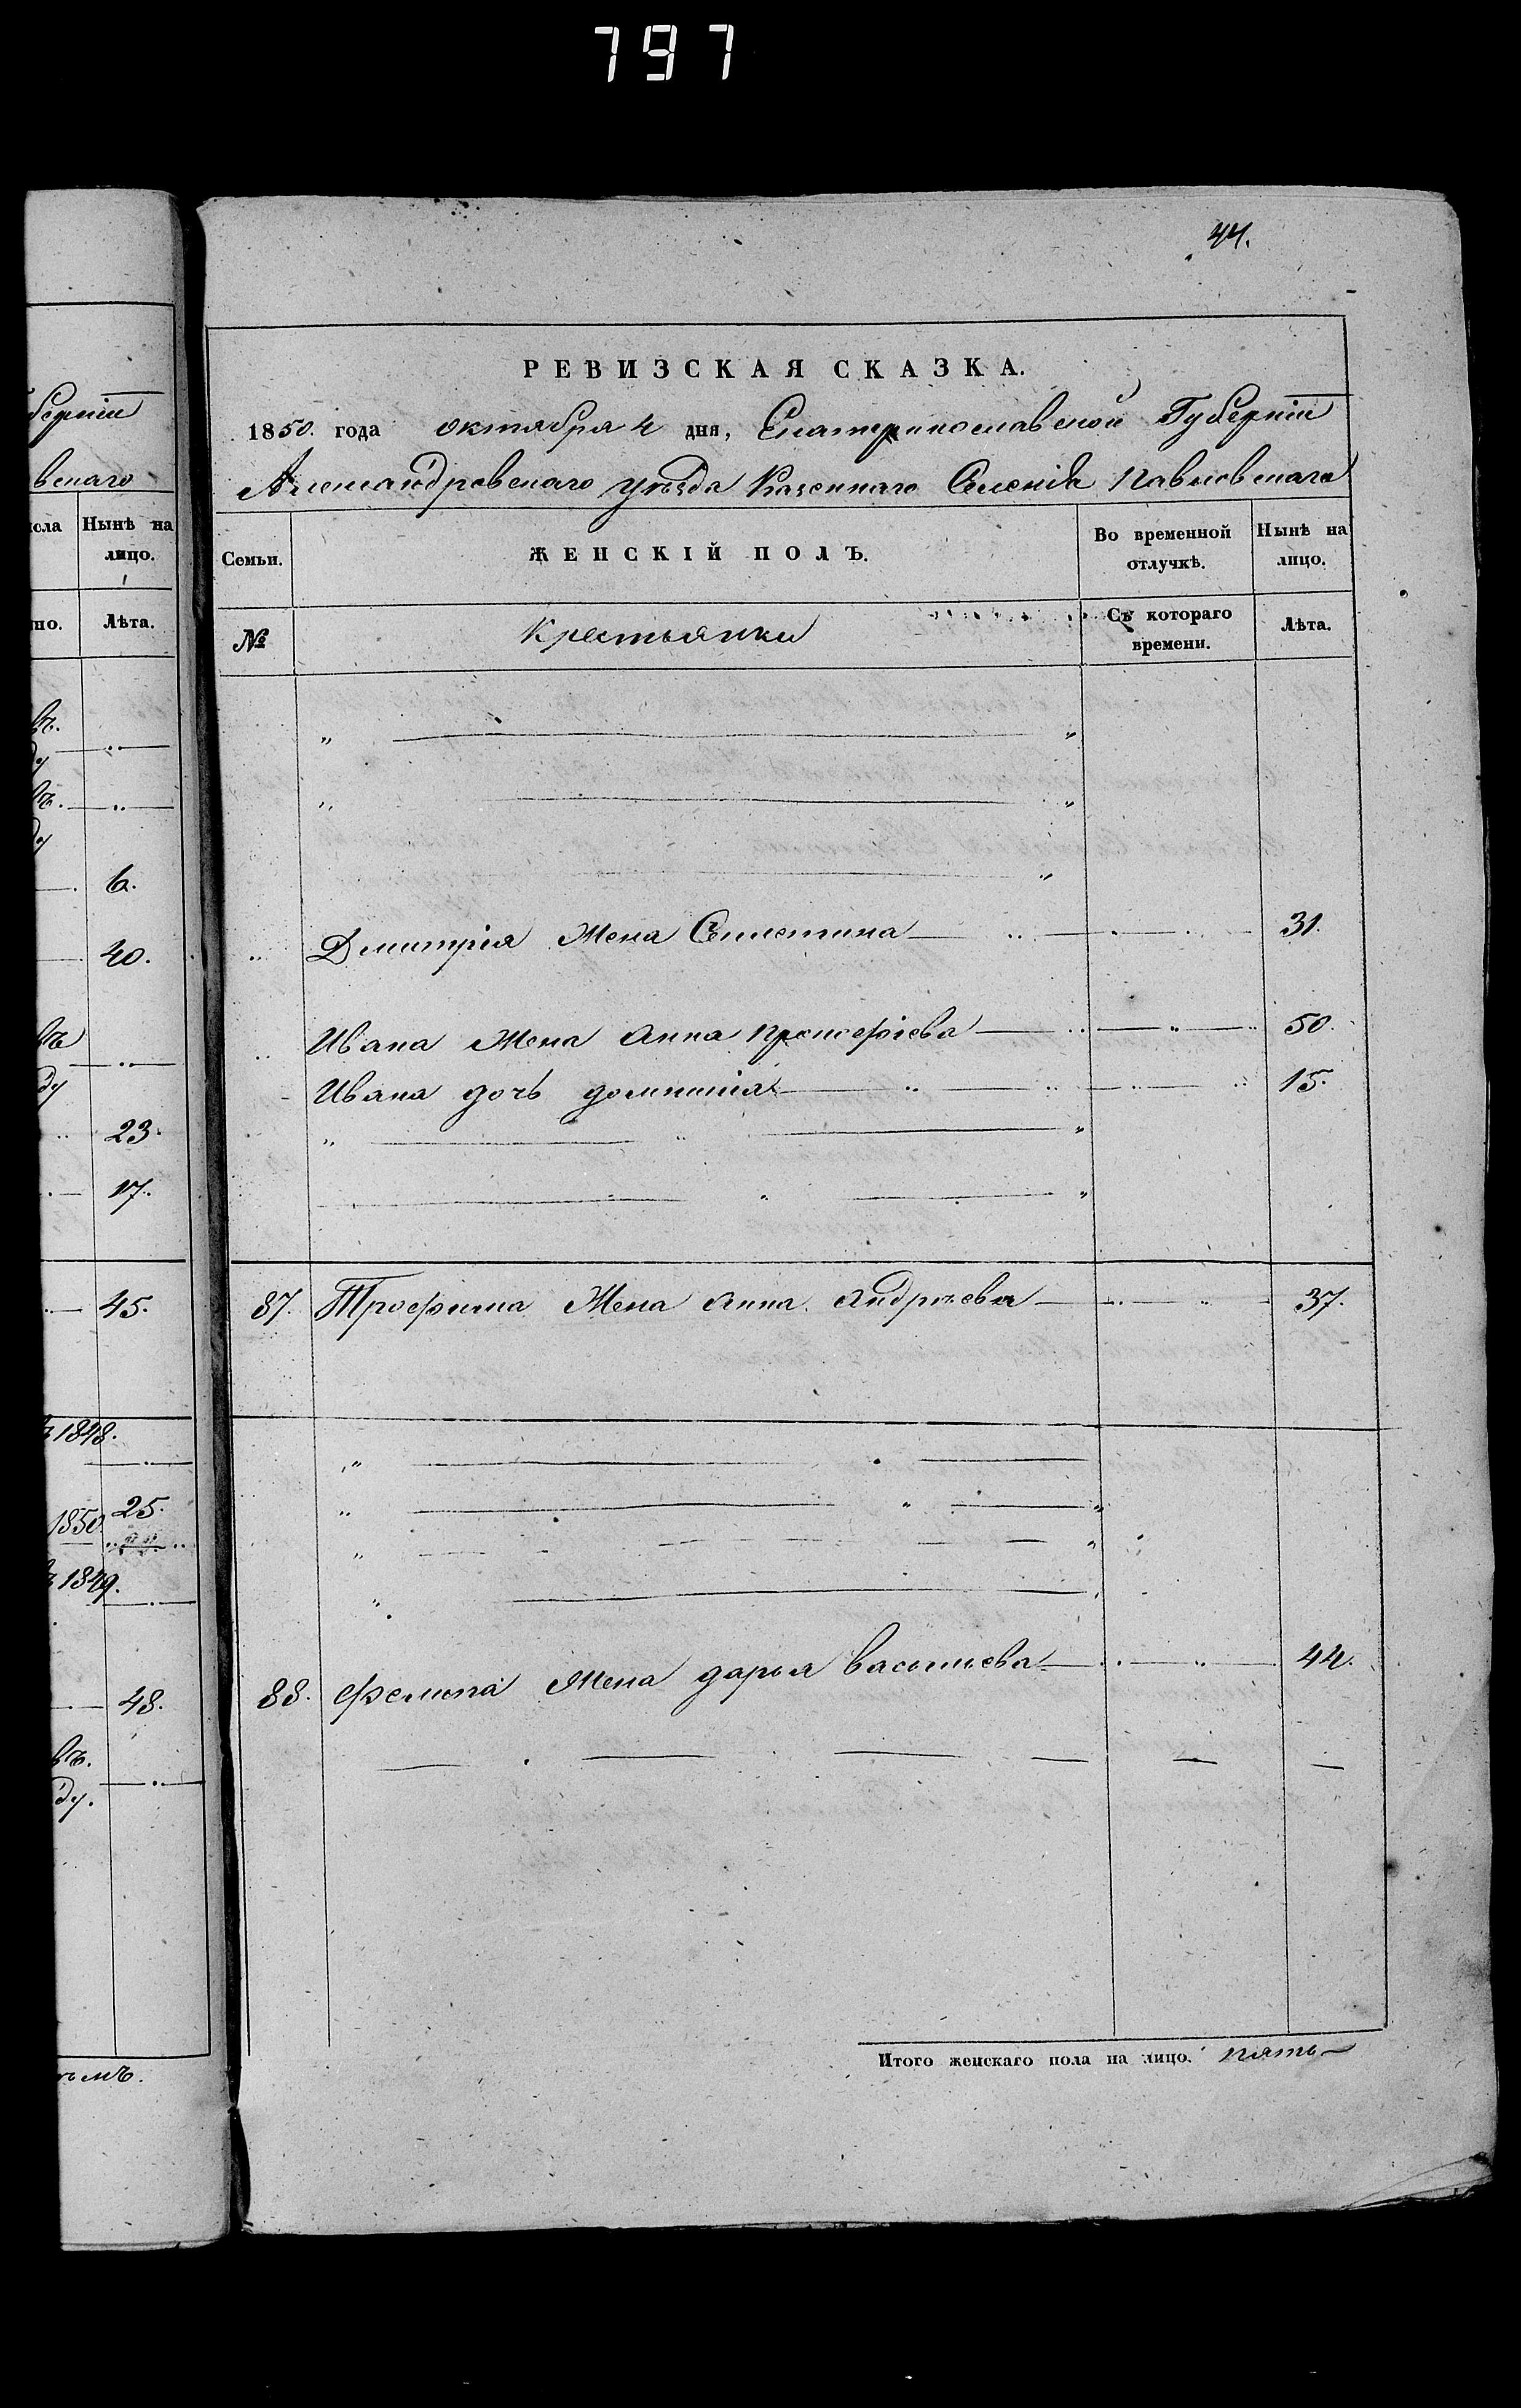 797
берніи
вскаго
исла Нынѣ на
лицо.
но. Лѣта.
въ.
ду
въ.
ду
6.
40.
въ
ду
23.
17.
45.
1848.
25.
1850
1849.
48.
въ.
ду.
44.
РЕВИЗСКАЯ СКАЗКА.
1850. года октября 4 дня, Екатеринославской Губерніи
Александровскаго уѣзда Казеннаго Селенія Павловскаго
Семьи. ЖЕНСКІЙ ПОЛЪ. Во временной отлучкѣ. Нынѣ на лицо.
№ Крестьянки Съ котораго времени. Лѣта.
Дмитрія Жена 31.
Ивана Жена Анна Прокофіева 50.
Ивана дочь домникія 15.
87. Трофима Жена Анна Андрѣева 37.
88. Жена дарья васильева 44.
Итого женскаго пола на лицо. пять